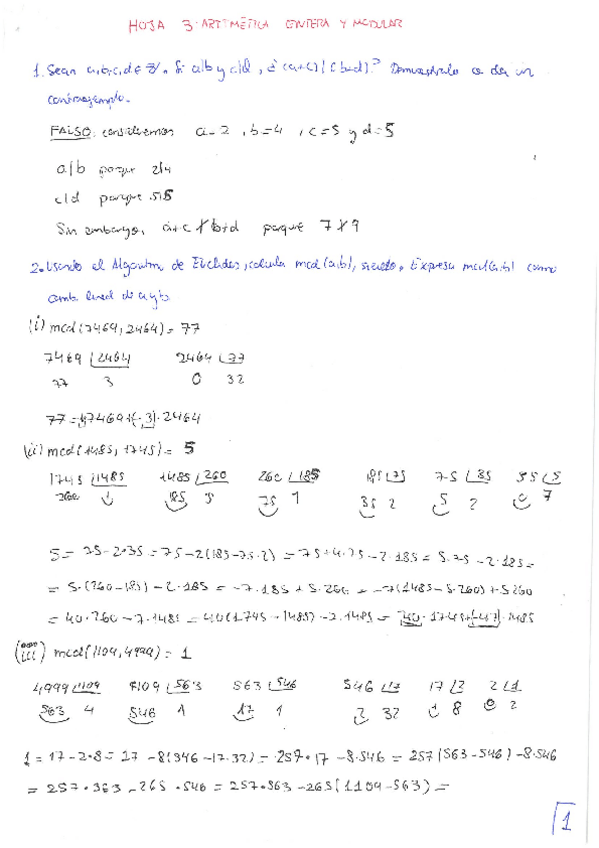 HOJA 3: ARITMÉTICA ENTERA Y MODULAR
1. Sean a,b,c,d ∈ Z. Si a|b y c|d, ¿(a+c)|(b+d)? Demuéstralo o da un
contraejemplo.
FALSO: consideremos a=2, b=4, c=5 y d=5
a|b porque 2|4
c|d porque 5|5
Sin embargo, a+c ∤ b+d porque 7 ∤ 9
2. Usando el Algoritmo de Euclides, calcula mcd(a,b), siendo. Expresa mcd(a,b) como
comb lineal de a y b.
(i) mcd(7469, 2464) = 77
7469 |2464 2464 |77
77 3 0 32
77 = 1·7469 + (-3)·2464
(ii) mcd(1485, 1745) = 5
1745 |1485 1485 |260 260 |185 185 |75 75 |35 35 |5
260 1 185 5 75 1 35 2 5 2 0 7
5 = 75-2·35 = 75-2(185-75·2) = 75+4·75-2·185 = 5·75-2·185 =
= 5·(260-185)-2·185 = -7·185+5·260 = -7(1485-5·260)+5·260
= 40·260-7·1485 = 40(1745-1485)-7·1485 = 40·1745+(-47)·1485
(iii) mcd(1109, 4999) = 1
4999 |1109 1109 |563 563 |546 546 |17 17 |2 2 |1
563 4 546 1 17 1 2 32 1 8 0 2
1 = 17-2·8 = 17-8(546-17·32) = 257·17-8·546 = 257(563-546)-8·546
= 257·563-265·546 = 257·563-265(1109-563) =
1